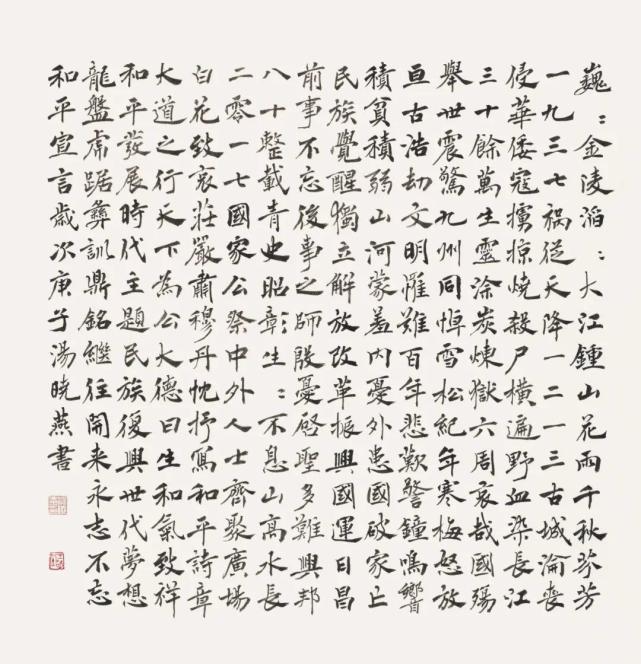 巍〻金陵滔〻大江鍾山花雨千秋芬芳
一九三七禍從天降一二一三古城淪喪
侵華倭寇擄掠燒殺尸橫遍野血染長江
三十餘萬生靈涂炭煉獄六周哀哉國殤
舉世震驚九州同悼雪松紀年寒梅怒放
亘古浩劫文明罹難百年悲歎警鐘鳴響
積貧積弱山河蒙羞內憂外患國破家亡
民族覺醒獨立解放改革振興國運日昌
前事不忘後事之師殷憂啓聖多難興邦
八十整載青史昭彰生〻不息山高水長
二零一七國家公祭中外人士齊聚廣場
白花致哀莊嚴肅穆丹忱抒寫和平詩章
大道之行天下為公大德曰生和氣致祥
和平發展時代主題民族復興世代夢想
龍盤虎踞彝訓鼎銘繼往開來永志不忘
和平宣言歲次庚子湯曉燕書